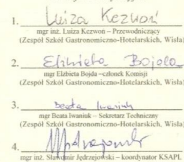 1. Luiza Kezwoń
mgr inż. Luiza Kezwoń – Przewodniczący
(Zespół Szkół Gastronomiczno-Hotelarskich, Wisła)
2. Elżbieta Bojda
mgr Elżbieta Bojda – członek Komisji
(Zespół Szkół Gastronomiczno-Hotelarskich, Wisła)
3. Beata Iwanink
mgr Beata Iwanink – Sekretarz Techniczny
(Zespół Szkół Gastronomiczno-Hotelarskich, Wisła)
4.
mgr inż. Sławomir Jędrzejowski – koordynator KSAPL